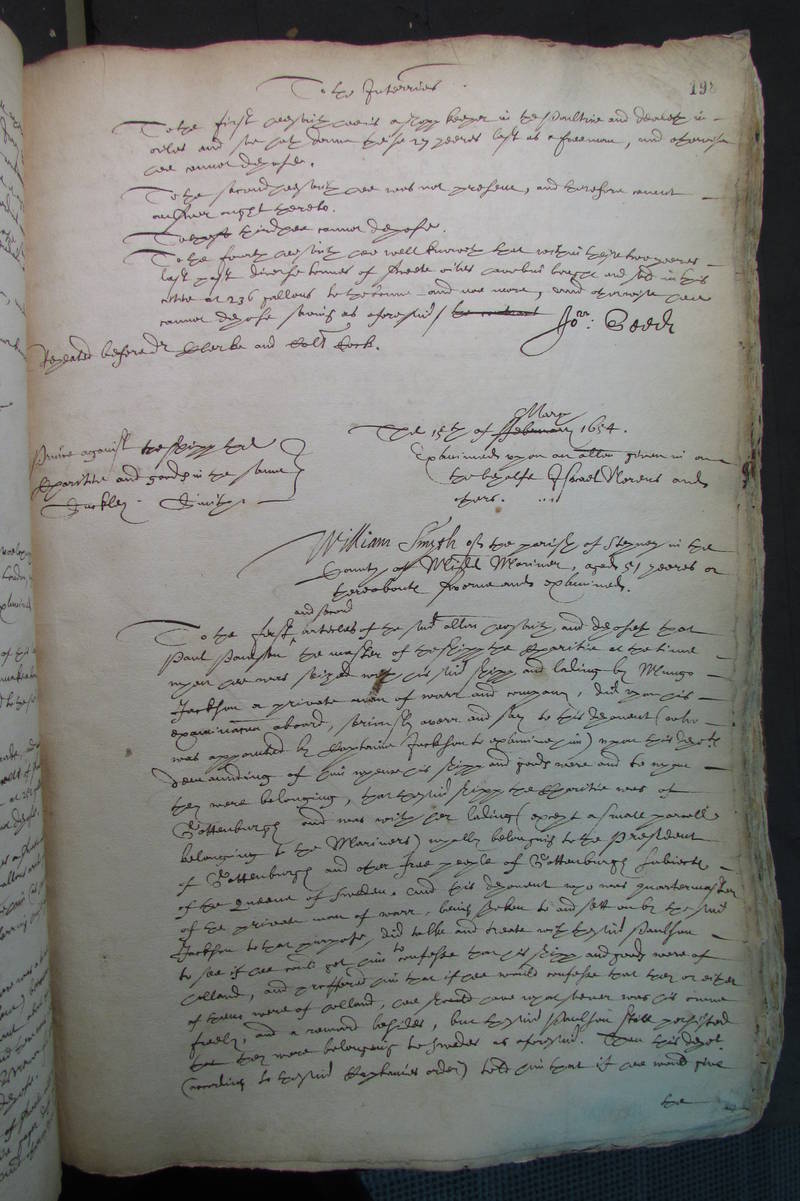 To the Interries
198
To the first hee saith hee is a shopp keeper in the Poultrie and dealeth in
oiles and soe hath donne these 27 yeeres last as a freeman, and otherwise
hee cannot depose.
To the second hee saith hee was not present, and therefore cannot
answer ought thereto.
To the third hee cannot depose.
To the fourth hee saith hee well knoweth that within these two yeeres
last past diverse tonnes of oiles have bin bought and sold in this
at 236 gallons to the tonne and noe more, and otherwise hee
cannot depose saving as aforesaid/
Repeated before dr Clerke and Colls Cock.
The 15th of February March 1654.
against the shipp the
Charitie and goods in the same
Suckley. Smith.
Examined upon an allon given in on
the behalfe of Israel Norcus and
others.
William Smyth of the parish of Stepney in the
County of Midd Mariner, aged 51 yeeres or
thereabouts sworne and examined.
To the first and second articles of the said allon hee saith and deposeth that
Paul Paulson the master of the shipp the Charitie at the time
when hee was seized with his said shipp and lading by Mungo
Jackson a private man of warr and company, did upon his
examinacon aboard, seriously averr and say to this deponent (who
was appointed by Captaine Jackson to examine him) upon this depots
demaunding of him whence his shipp and goods were and to whom
they were belonging, that the said shipp the Charitie was of
Gottenburgh and was with her lading (except a small parcell
belonging to the Mariners) wholly belonging to the President
of Gottenburgh and other free people of Gottenburgh subiects
of the Queene of Sweden. And this deponent who was quartermaster
of the private man of warr, being spoken to and sett on by the said
Jackson to that purpose, did talke and treate with the said Paulson
to see if hee could get him to confesse that his shipp and goods were of
holland, and proffered him that if hee would confesse that they or either
of them were of holland, hee should have what soever was his owne
freely, and a reward besides, but the said Paulson still persisted
that they were belonging to Swedes as aforesaid. Then this depot
(according to the said Captaines order) told him that if hee would give
the